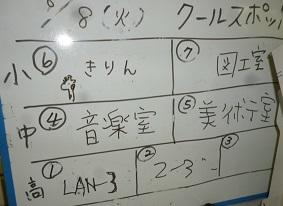 /8(火) クールスポッ
小 ⑥ きりん ⑦ 図工室
中 ④ 音楽室 ⑤ 美術室
高 ① LAN-3 ② 2-3 ③